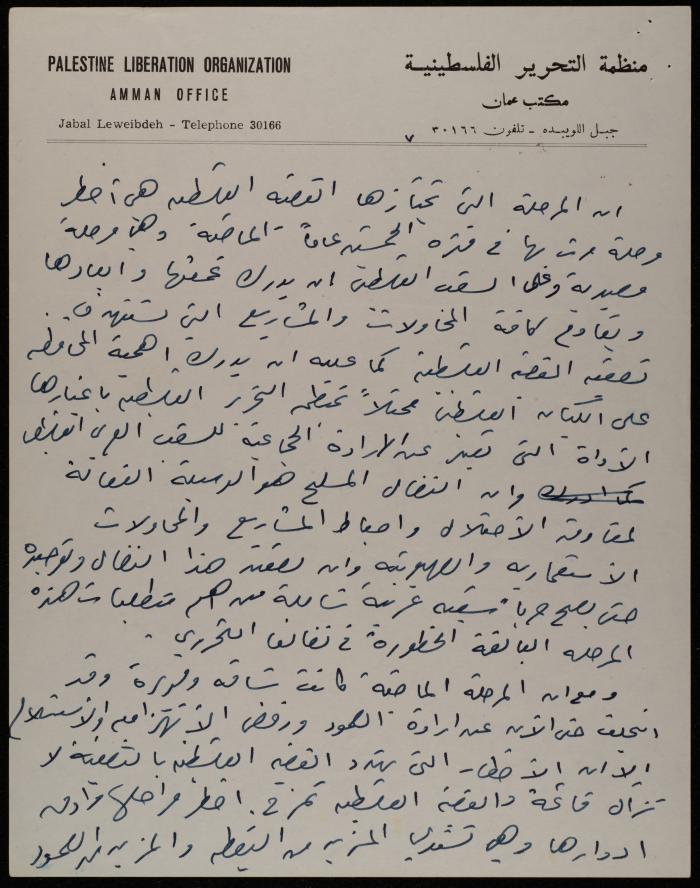 PALESTINE LIBERATION ORGANIZATION
AMMAN OFFICE
Jabal Leweibdeh - Telephone 30166
منظمة التحرير الفلسطينية
مكتب عمان
جبل اللويبده - تلفون ٣٠١٦٦
ان المرحلة التي تجتازها القضية الفلسطينيه هي أخطر
مرحلة مرت بها في فترة الخمسين عاماً الماضية وهي مرحلة
مصيرية وعلى الشعب الفلسطيني ان يدرك عمقها وابعادها
ويقاوم كافة المحاولات والمشاريع التي تستهدف
تصفية القضية الفلسطينية كما عليه ان يدرك اهمية المحافظه
على الكيان الفلسطيني ممثلاً بمنظمة التحرير الفلسطينيه باعتبارها
الأداة التي تعبر عن الارادة الجماعية للشعب العربي الفلسطيني
وان النضال المسلح هو الوسيلة الفعالة
لمقاومة الاحتلال واحباط المشاريع والمحاولات
الاستعماريه والصهيونيه وان تصعيد هذا النضال وتوحيده
حتى يصبح حرباً شعبيه عربية شاملة من اهم متطلبات هذه
المرحله البالغة الخطورة في نضالنا التحرري .
ومع ان المرحلة الماضية كانت شاقه ومريرة وقد
انجلت حتى الآن عن ارادة الصمود ورفض الانهزاميه والاستسلام
الا ان الأخطار التي تهدد القضيه الفلسطينيه بالتصفية لا
تزال قائمة والقضيه الفلسطينيه تمر في اخطر مراحلها وادق
ادوارها وهي تستدعي المزيد من اليقظه والمزيد من الصمود